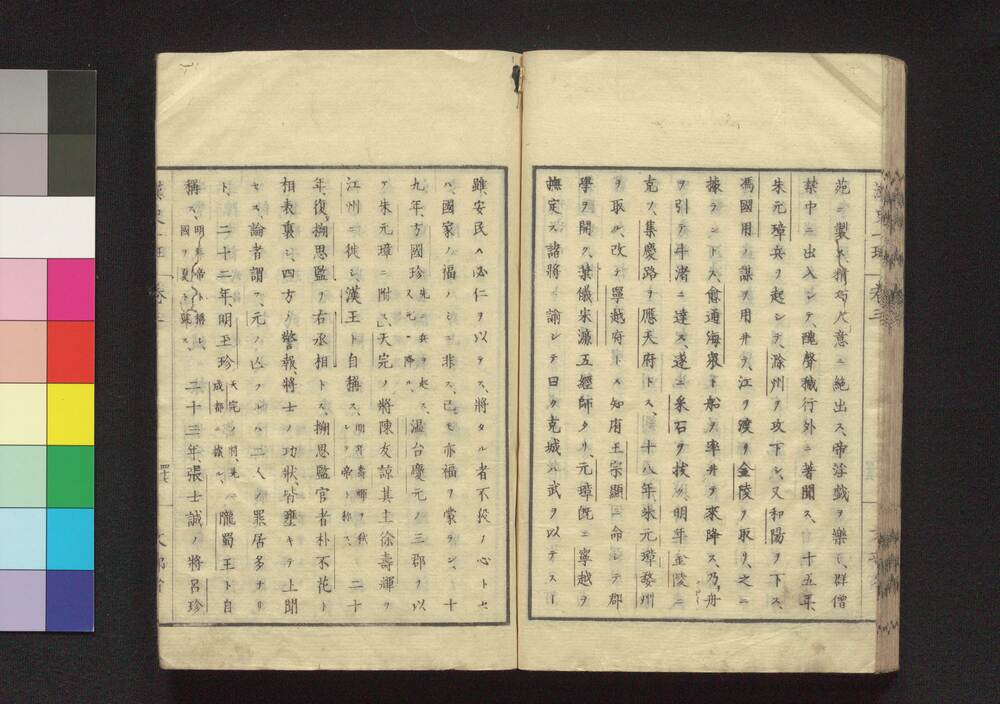 苑ニ製ス、精巧人意ニ絶出ス、帝淫戯ヲ樂ミ、群僧
禁中ニ出入シテ、醜聲穢行外ニ著聞ス、十五年、
朱元璋兵ヲ起シテ、滁州ヲ攻下シ、又和陽ヲ下ス、
馮國用カ謀ヲ用井テ、江ヲ渡リ金陵ヲ取リ、之ニ
據ラントス、會通海衆ト船ヲ率井テ來降ス、乃舟
ヲ引テ牛渚ニ達ス、遂ニ采石ヲ拔ク、明年金陵ニ
克ツ、集慶路ヲ應天府トス、十八年、朱元璋婺州
ヲ取ル、改テ寧越府トス、知府王宗顯ニ命シテ郡
學ヲ開ク、葉儀宋濂五經師タリ、元璋既ニ寧越ヲ
撫定ス、諸將ニ諭シテ曰ク克城ハ武ヲ以テスト
雖、安民ハ必仁ヲ以テス、將タル者不殺ノ心トセ
ハ、國家ノ福ノミニ非ス、己モ亦福ヲ蒙ラン、十
九年、方國珍先ニ兵ヲ起ス、元ニ降ル、温台慶元ノ三郡ヲ以
テ朱元璋ニ附ス、天完ノ將陳友諒其主徐壽輝ヲ
江州ニ徙シ、漢王ト自稱ス、明年壽輝ヲ弑シテ帝ト稱ス、二十
年、復搠思監ヲ右丞相トス、搠思監官者朴不花ト
相表裏シ、四方ノ警報、將士ノ功狀、皆壅キテ上聞
セス、論者謂ス、元ノ亡フルハ二人ノ罪居多ナリ
ト、二十二年、明玉珍天完ノ將、先ニ成都ニ據ル、隴蜀王ト自
稱ス、明年帝ト稱シ、國ヲ夏ト號ス、二十三年、張士誠ノ將呂珍